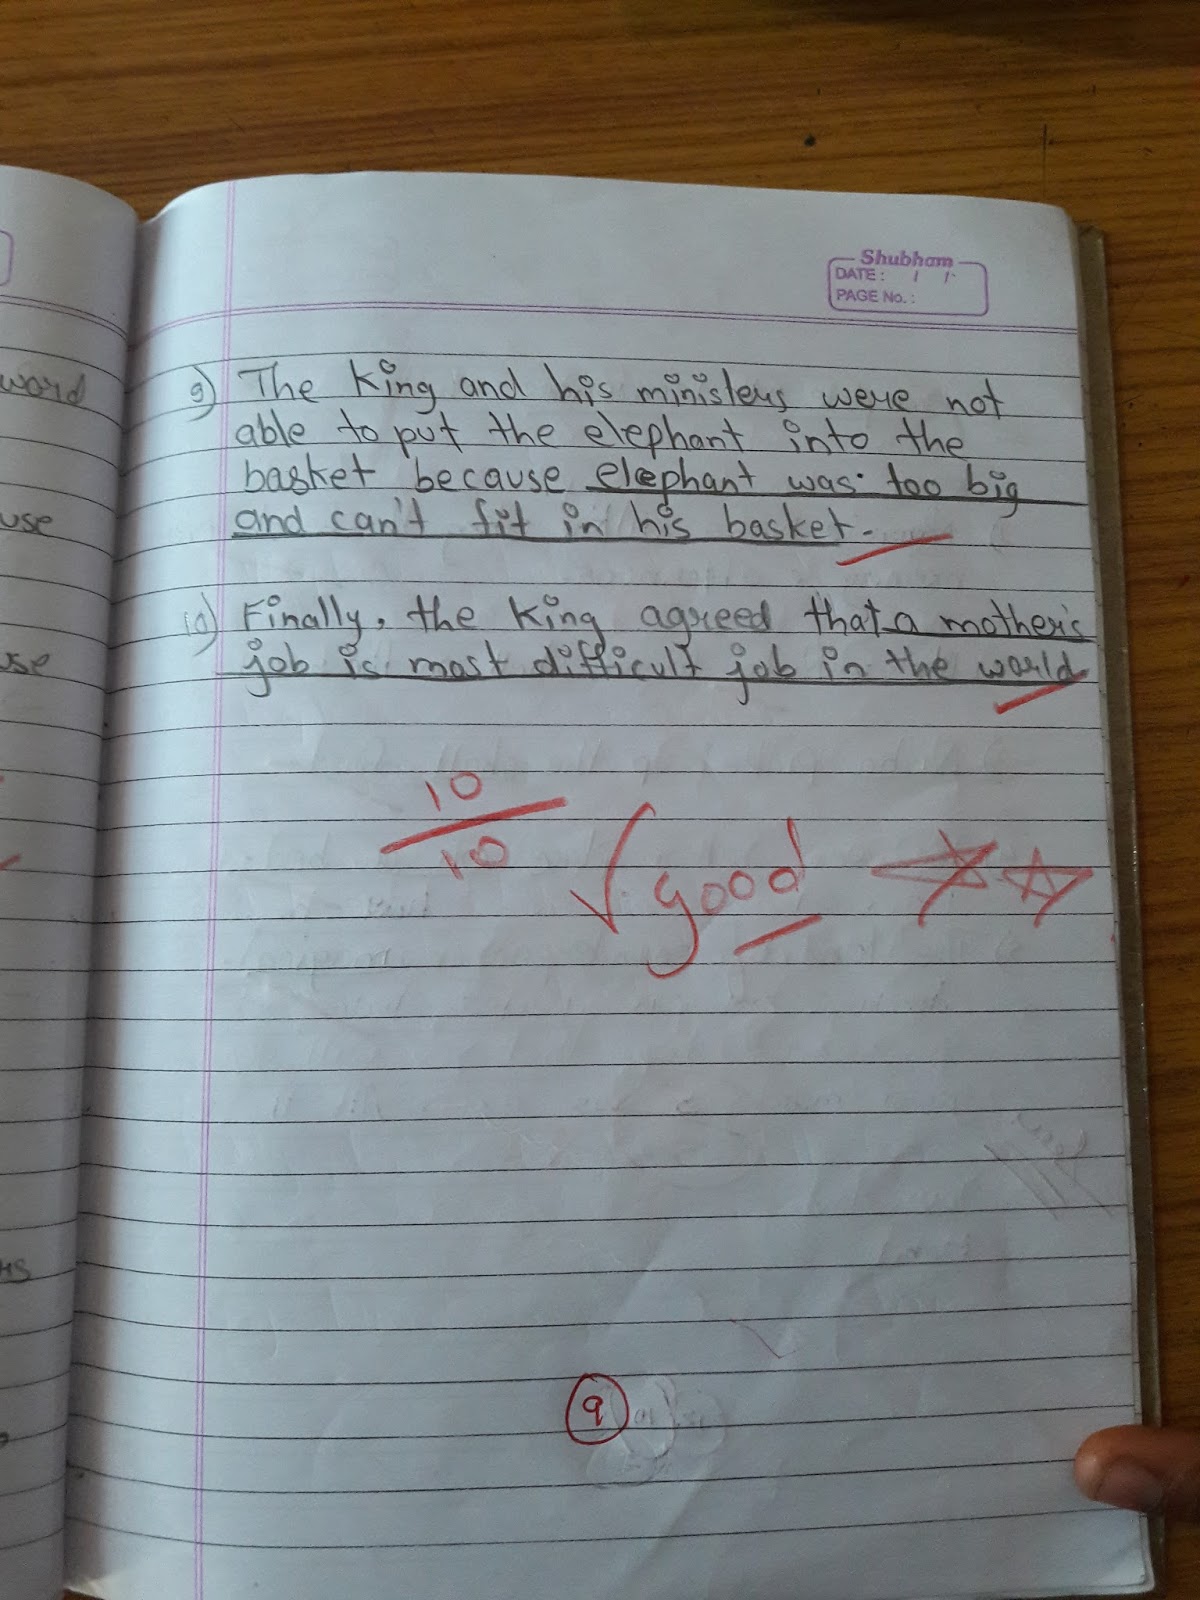 Shubham
DATE: / /
PAGE No.:
word
9) The King and his ministers were not
able to put the elephant into the
use
basket because elephant was too big
and can't fit in his basket.
10) Finally, the King agreed that a mother's
use
job is most difficult job in the world
10
10
good
9